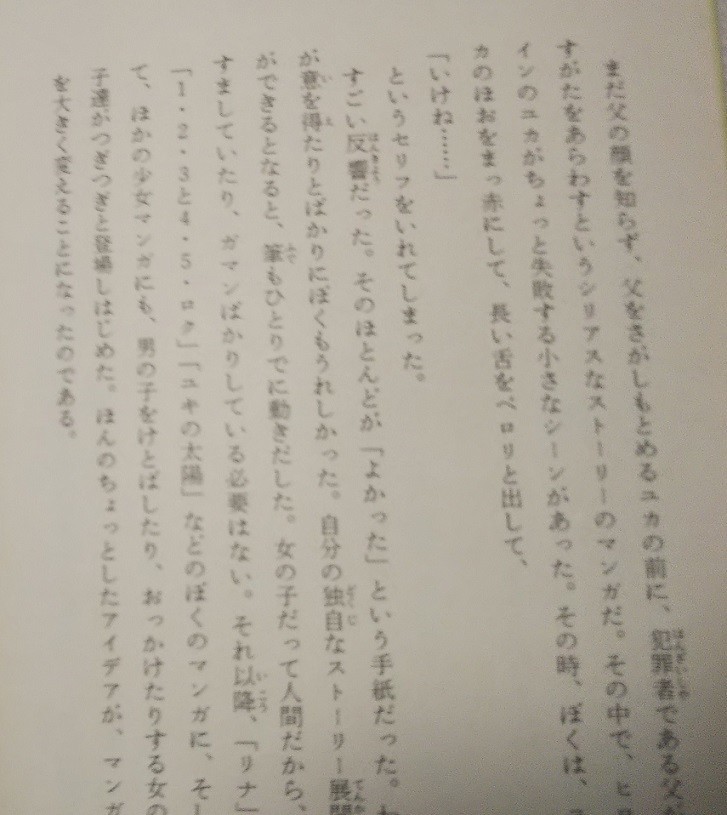 まだ父の顔を知らず、父をさがしもとめるユカの前に、犯罪者である父が
すがたをあらわすというシリアスなストーリーのマンガだ。その中で、ヒロ
インのユカがちょっと失敗する小さなシーンがあった。その時、ぼくは、
カのほおをまっ赤にして、長い舌をペロリと出して、
「いけね……」
というセリフをいれてしまった。
すごい反響だった。そのほとんどが「よかった」という手紙だった。
が意を得たりとばかりにぼくもうれしかった。自分の独自なストーリー展開
ができるとなると、筆もひとりでに動きだした。女の子だって人間だから、
すましていたり、ガマンばかりしている必要はない。それ以降、「リナ」
「1・2・3と4・5・ロク」「ユキの太陽」などのぼくのマンガに、そし
て、ほかの少女マンガにも、男の子をけとばしたり、おっかけたりする女の
子達がつぎつぎと登場しはじめた。ほんのちょっとしたアイデアが、マンガ
を大きく変えることになったのである。